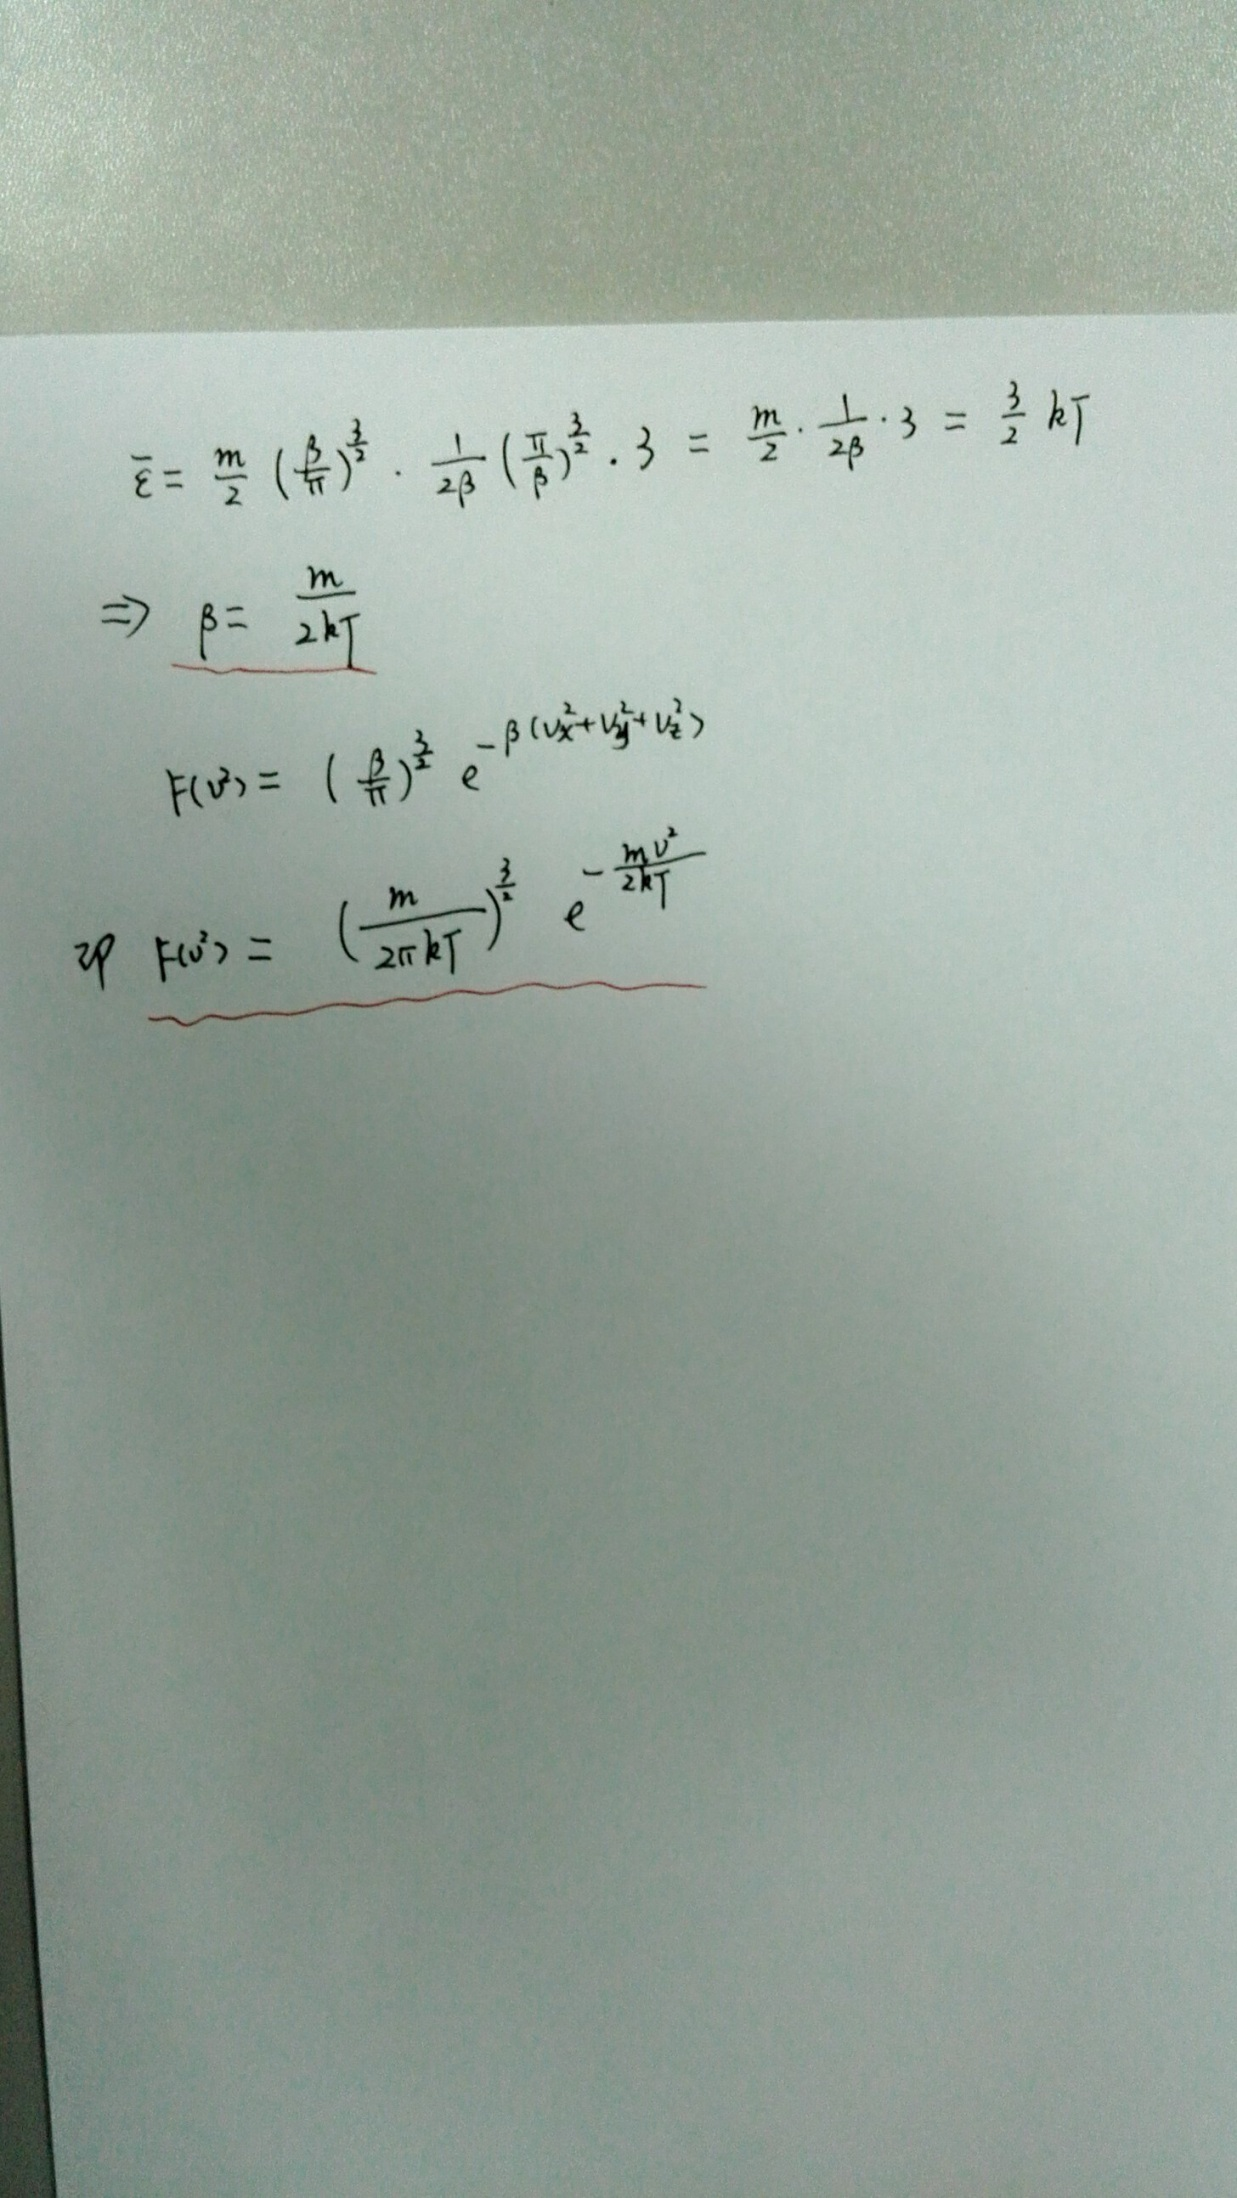 ε̄ = m/2 (β/π)^(3/2) · 1/(2β) (π/β)^(3/2) · 3 = m/2 · 1/(2β) · 3 = 3/2 kT
⇒ β = m/(2kT)
F(v²) = (β/π)^(3/2) e^(-β(vₓ²+v_y²+v_z²))
即 F(v²) = (m/(2πkT))^(3/2) e^(-mv²/(2kT))